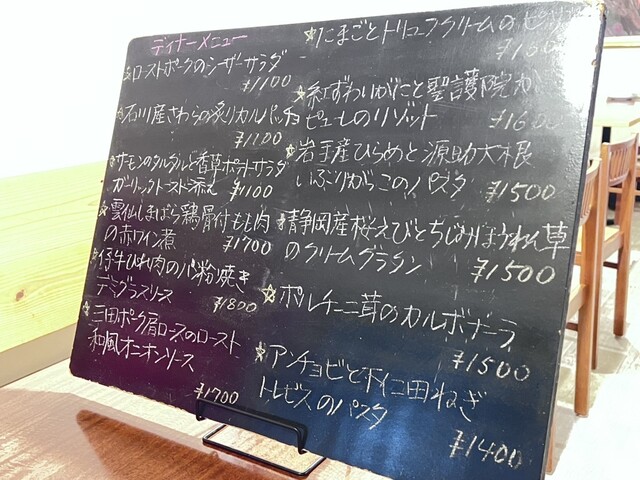 ディナーメニュー
☆ローストポークのシーザーサラダ
¥1100
☆石川産さわらの炙りカルパッチョ
¥1100
☆サーモンのタルタルと香草ポテトサラダ
ガーリックトースト添え ¥1100
☆雲仙しまばら鶏骨付もも肉
の赤ワイン煮 ¥1700
☆仔牛ひれ肉のパン粉焼き
デミグラスソース ¥1800
☆三田ポーク肩ロースのロースト
和風オニオンソース
¥1700
☆たまごとトリュフクリームのピザ
☆紅ずわいがにと聖護院か
ピューレのリゾット ¥1600
☆岩手産ひらめと源助大根
いぶりがっこのパスタ ¥1500
☆静岡産桜えびとちぢみほうれん草
のクリームグラタン ¥1500
☆ポルチーニ茸のカルボナーラ
¥1500
☆アンチョビと下仁田ねぎ
トレビスのパスタ
¥1400